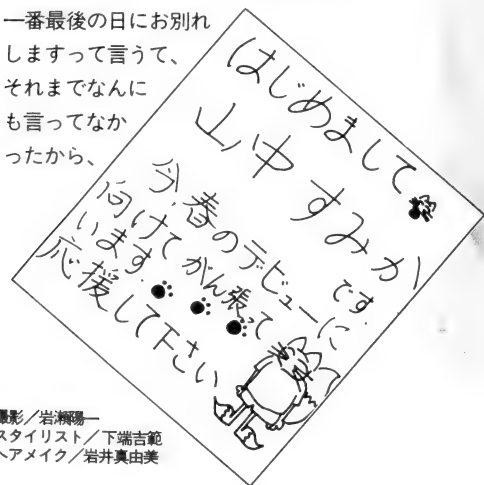 一番最後の日にお別れ
しますって言うて、
それまでなんに
も言ってなか
ったから、
はじめまして
山中すみか
です.
今、春のデビューに
向けてがん張って
います.
応援して下さい
撮影／岩瀬陽一
スタイリスト／下端吉範
ヘアメイク／岩井真由美